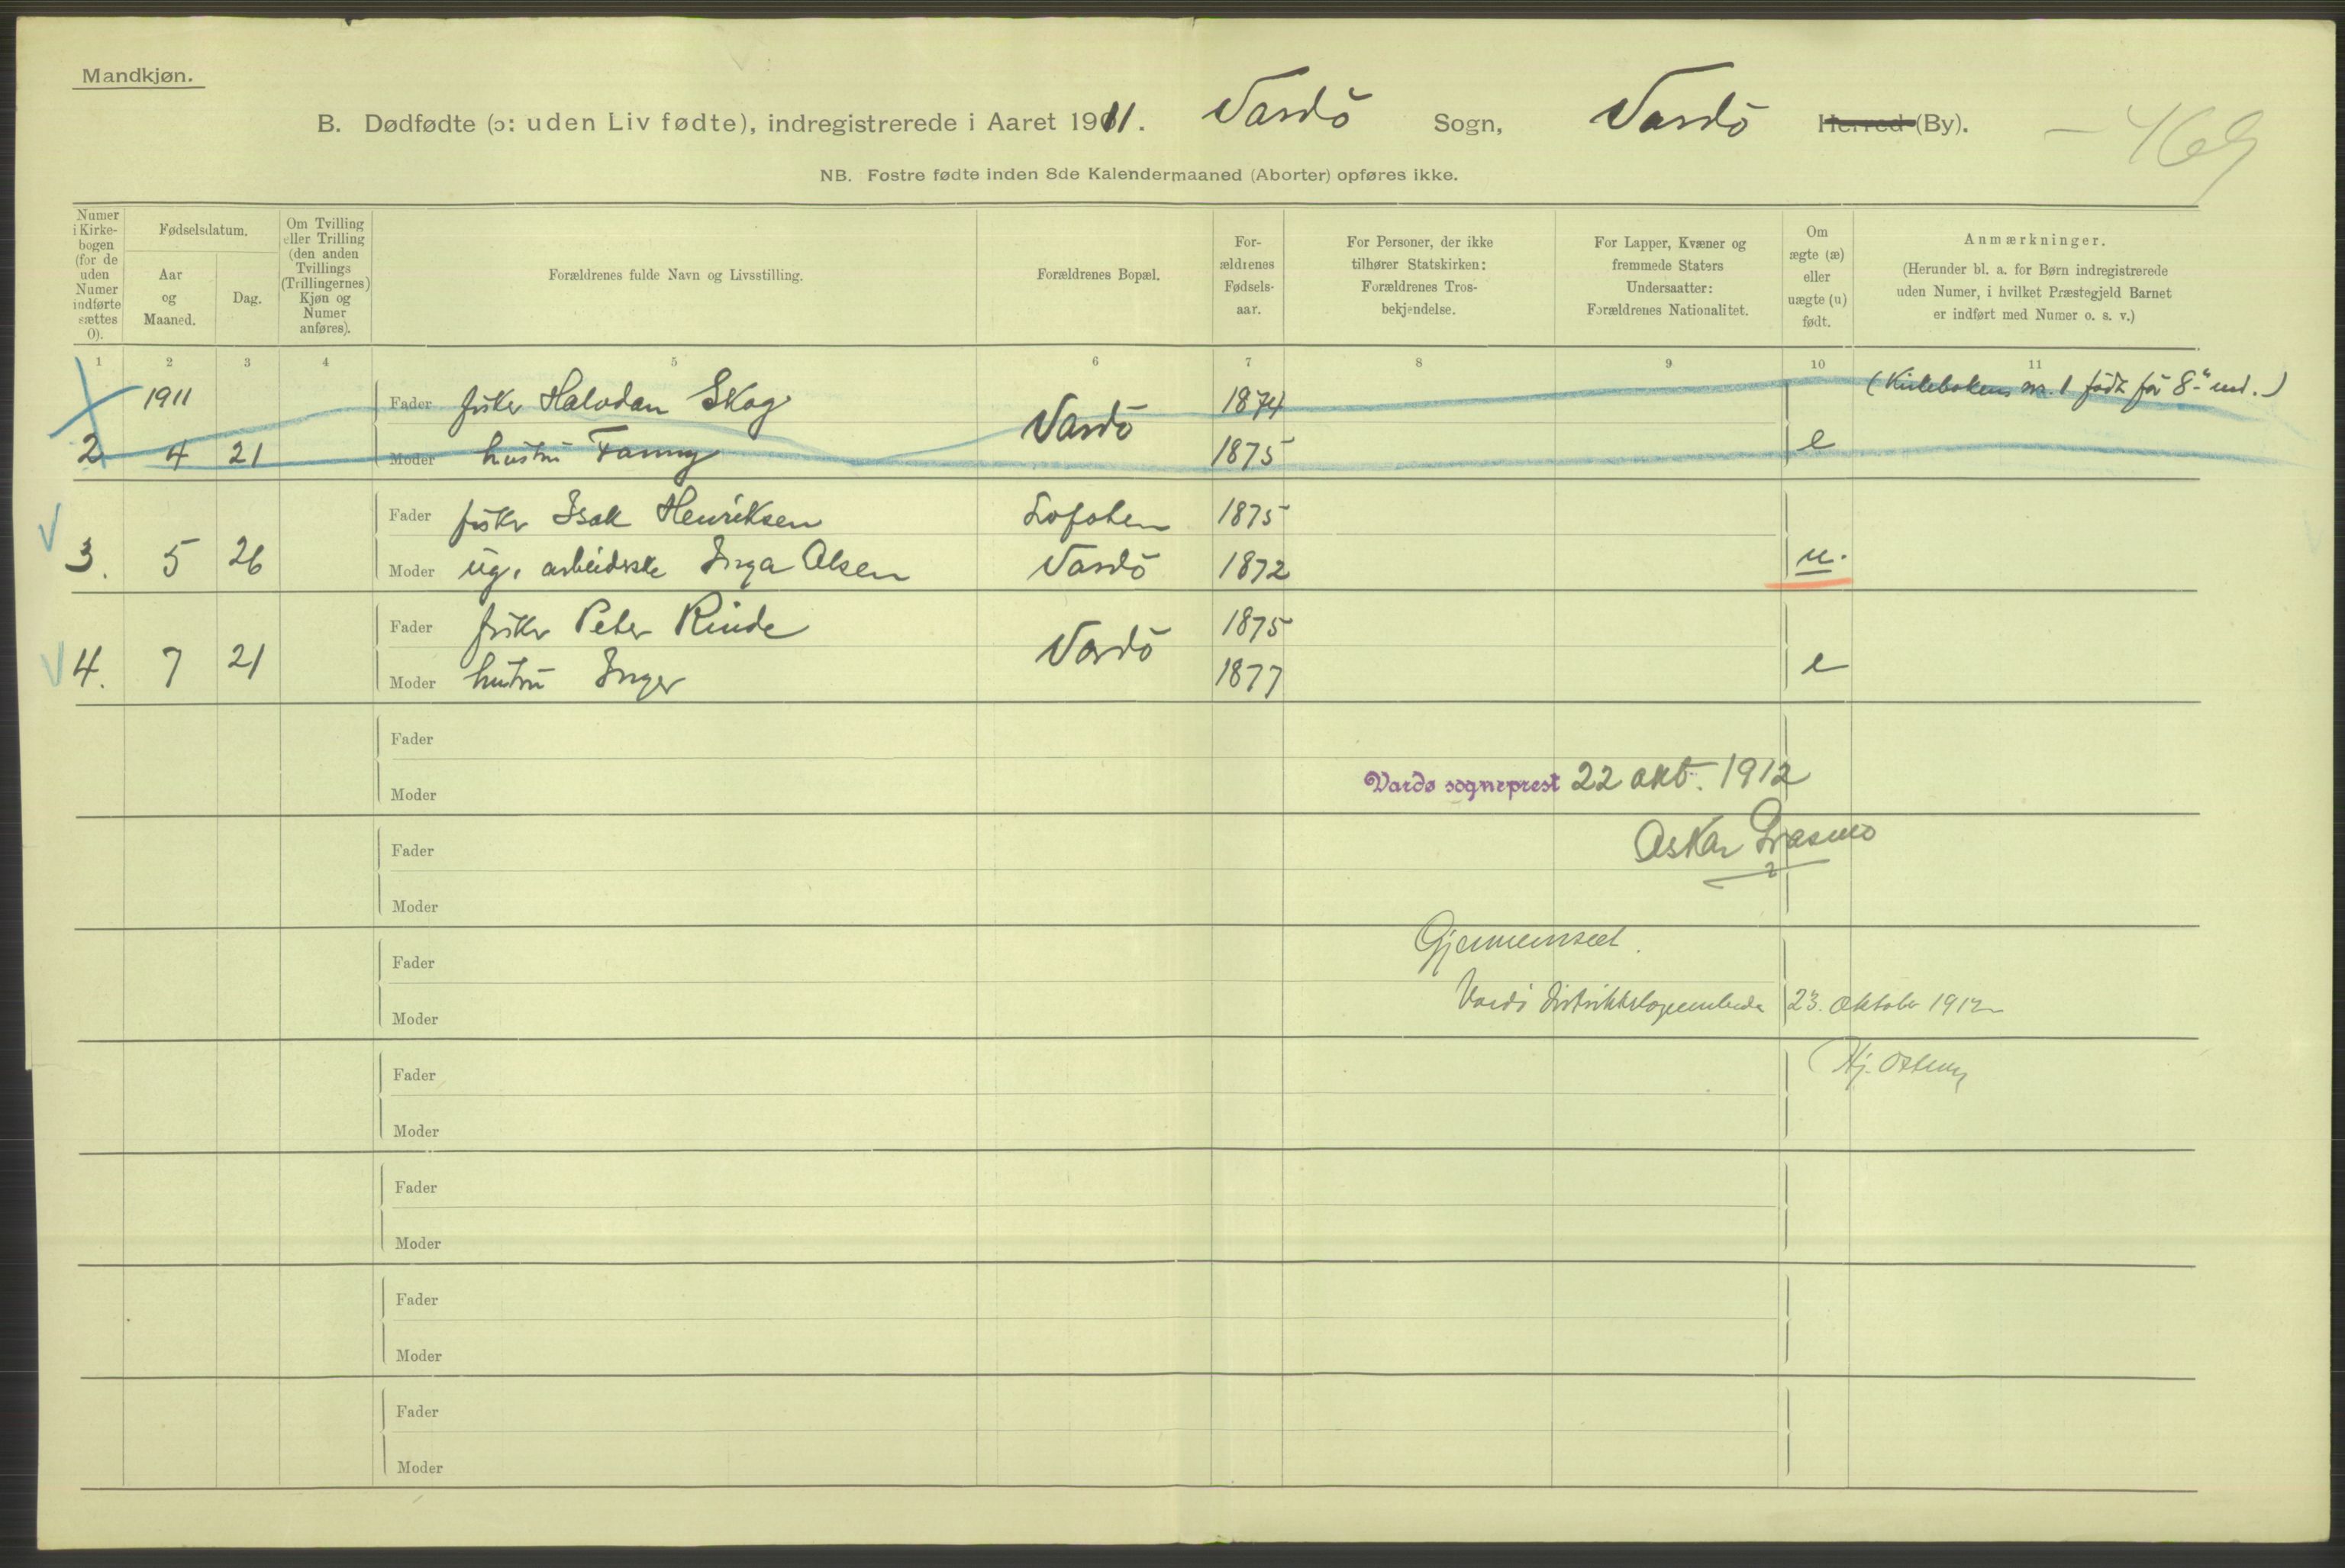 Mandkjøn.
B. Dødfødte (ɔ: uden Liv fødte), indregistrerede i Aaret 1911. Vardö Sogn, Vardö Herred (By).
- 469
NB. Fostre fødte inden 8de Kalendermaaned (Aborter) opføres ikke.
Numer i Kirkebogen (for de uden Numer indførte sættes 0).
Fødselsdatum.
Aar og Maaned.
Dag.
Om Tvilling eller Trilling (den anden Tvillings (Trillingernes) Kjøn og Numer anføres).
Forældrenes fulde Navn og Livsstilling.
Forældrenes Bopæl.
For-ældrenes Fødsels-aar.
For Personer, der ikke tilhører Statskirken: Forældrenes Tros-bekjendelse.
For Lapper, Kvæner og fremmede Staters Undersaatter: Forældrenes Nationalitet.
Om ægte (æ) eller uægte (u) født.
Anmærkninger.
(Herunder bl. a. for Børn indregistrerede uden Numer, i hvilket Præstegjeld Barnet er indført med Numer o. s. v.)
1 2 3 4 5 6 7 8 9 10 11
1911 Fader fisker Halvdan Skog Vardö 1874 (Kirkebokens nr. 1 født før 8" md.)
2 4 21 Moder hustru Fanny 1875 e
Fader fisker Isak Henriksen Lofoten 1875
3. 5 26 Moder ug. arbeiderske Inga Olsen Vardö 1872 u.
Fader fisker Peter Rinde Vardö 1875
4. 7 21 Moder hustru Inger 1877 e
Fader
Moder
Vardø sogneprest 22 okt. 1912
Fader
Oskar
Moder
Gjennemseet.
Fader
Moder
Vardö distriktslægeembede 23. oktober 1912
Fader
Hj.
Moder
Fader
Moder
Fader
Moder
Fader
Moder